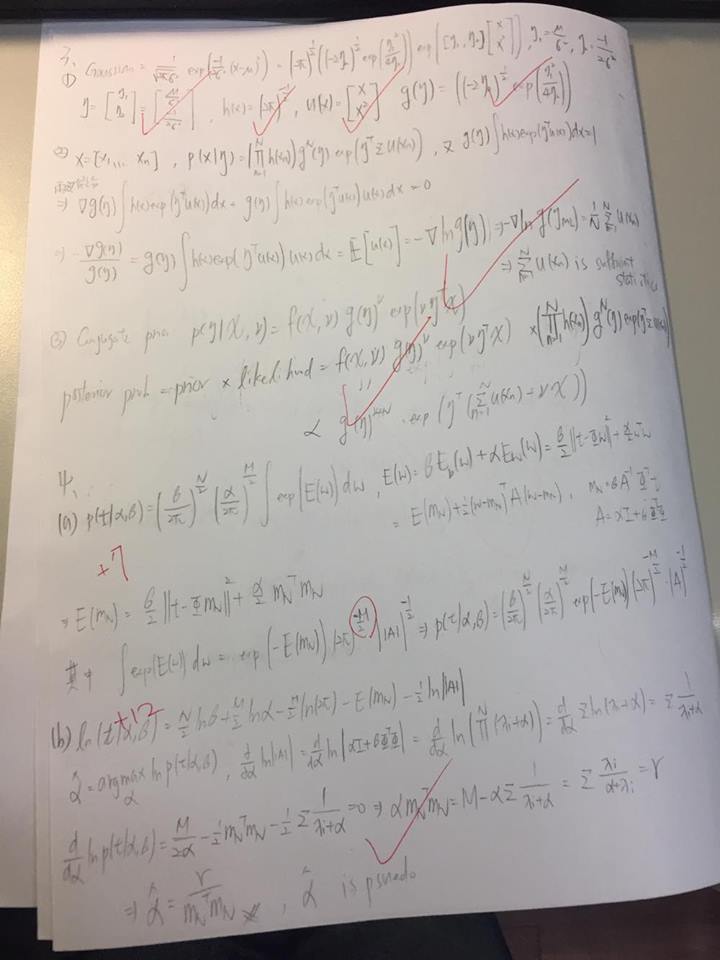 3、
① Gaussian = 1/√(2πσ²) exp(-1/2σ² (x-μ)²) = (2π)^(-1/2) ((-2η₂)^(1/2) exp(η₁²/4η₂)) exp([η₁, η₂][x x²]), η₁ = μ/σ², η₂ = -1/2σ²
η = [η₁ η₂] = [μ/σ² -1/2σ²], h(x) = (2π)^(-1/2), u(x) = [x x²] g(η) = ((-2η₂)^(1/2) exp(η₁²/4η₂))
② X = [x₁,... xₙ], p(X|η) = (∏ₙ₌₁ᴺ h(xₙ)) gᴺ(η) exp(ηᵀ Σ u(xₙ)), 又 g(η) ∫ h(x) exp(ηᵀu(x)) dx = 1
⇒ ∇g(η) ∫ h(x) exp(ηᵀu(x)) dx + g(η) ∫ h(x) exp(ηᵀu(x)) u(x) dx = 0
⇒ -∇g(η)/g(η) = g(η) ∫ h(x) exp(ηᵀu(x)) u(x) dx = E[u(x)] = -∇ln g(η), ⇒ -∇ln g(η_ML) = 1/N Σₙ₌₁ᴺ u(xₙ)
⇒ Σₙ₌₁ᴺ u(xₙ) is sufficient statistics
③ Conjugate prior p(η|χ, ν) = f(χ, ν) g(η)^ν exp(νηᵀχ)
posterior prob = prior × likelihood = f(χ, ν) g(η)^ν exp(νηᵀχ) × (∏ₙ₌₁ᴺ h(xₙ)) gᴺ(η) exp(ηᵀΣu(xₙ))
∝ g(η)^(ν+N) · exp(ηᵀ(Σₙ₌₁ᴺ u(xₙ) + νχ))
4、
(a) p(t|α,β) = (β/2π)^(N/2) (α/2π)^(M/2) ∫ exp(E(w)) dw, E(w) = βE_D(w) + αE_w(w) = β/2 ||t-Φw||² + α/2 wᵀw
= E(m_N) + ½(w-m_N)ᵀA(w-m_N), m_N = βA⁻¹Φᵀt
A = αI + βΦᵀΦ
+7
⇒ E(m_N) = β/2 ||t-Φm_N||² + α/2 m_Nᵀm_N
其中 ∫exp(E(w)) dw = exp(-E(m_N)) (2π)^(-M/2) |A|^(-1/2) ⇒ p(t|α,β) = (β/2π)^(N/2) (α/2π)^(M/2) exp(-E(m_N)) (2π)^(-M/2) · |A|^(-1/2)
+12
(b) ln(t|α,β) = N/2 lnβ + M/2 lnα - N/2 ln(2π) - E(m_N) - ½ ln|A|
α̂ = argmax_α ln p(t|α,β), d/dα ln|A| = d/dα ln|αI + βΦᵀΦ| = d/dα ln(∏(λᵢ+α)) = d/dα Σ ln(λᵢ+α) = Σ 1/(λᵢ+α)
d/dα ln p(t|α,β) = M/2α - ½m_Nᵀm_N - ½ Σ 1/(λᵢ+α) = 0 ⇒ αm_Nᵀm_N = M - αΣ 1/(λᵢ+α) = Σ λᵢ/(α+λᵢ) = γ
⇒ α̂ = γ/(m_Nᵀm_N), α̂ is psuedo